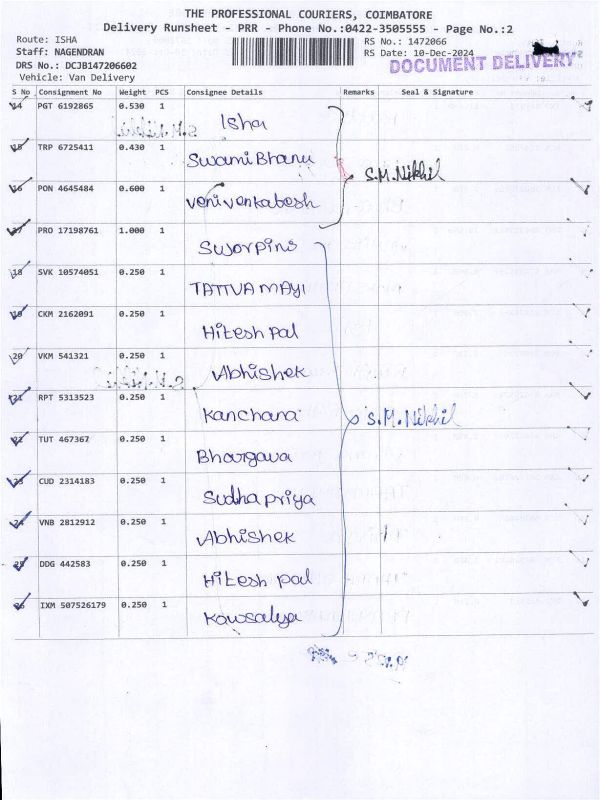 THE PROFESSIONAL COURIERS, COIMBATORE
Delivery Runsheet - PRR - Phone No.:0422-3505555 - Page No.:2
Route: ISHA
Staff: NAGENDRAN
DRS No.: DCJB147206602
Vehicle: Van Delivery
RS No.: 1472066
RS Date: 10-Dec-2024
DOCUMENT DELIVERY
S No Consignment No Weight PCS Consignee Details Remarks Seal & Signature
14 PGT 6192865 0.530 1 Isha
15 TRP 6725411 0.430 1 Swami Bhanu
S.M.Nikhil
16 PON 4645484 0.600 1 Venivenkatesh
17 PRO 17198761 1.000 1
18 SVK 10574051 0.250 1 TATTVA MAYI
19 CKM 2162091 0.250 1 Hitesh pal
20 VKM 541321 0.250 1 Abhishek
21 RPT 5313523 0.250 1 Kanchana
S.M.Nikhil
22 TUT 467367 0.250 1 Bhargava
23 CUD 2314183 0.250 1 Sudha priya
24 VNB 2812912 0.250 1 Abhishek
25 DDG 442583 0.250 1 Hitesh pal
26 IXM 507526179 0.250 1 Kowsalya